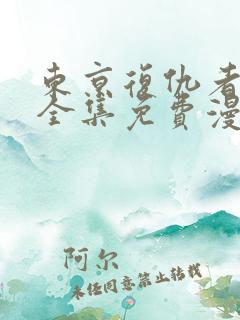 東京復仇者
全集免費漫
阿尔
未经同意禁止转载